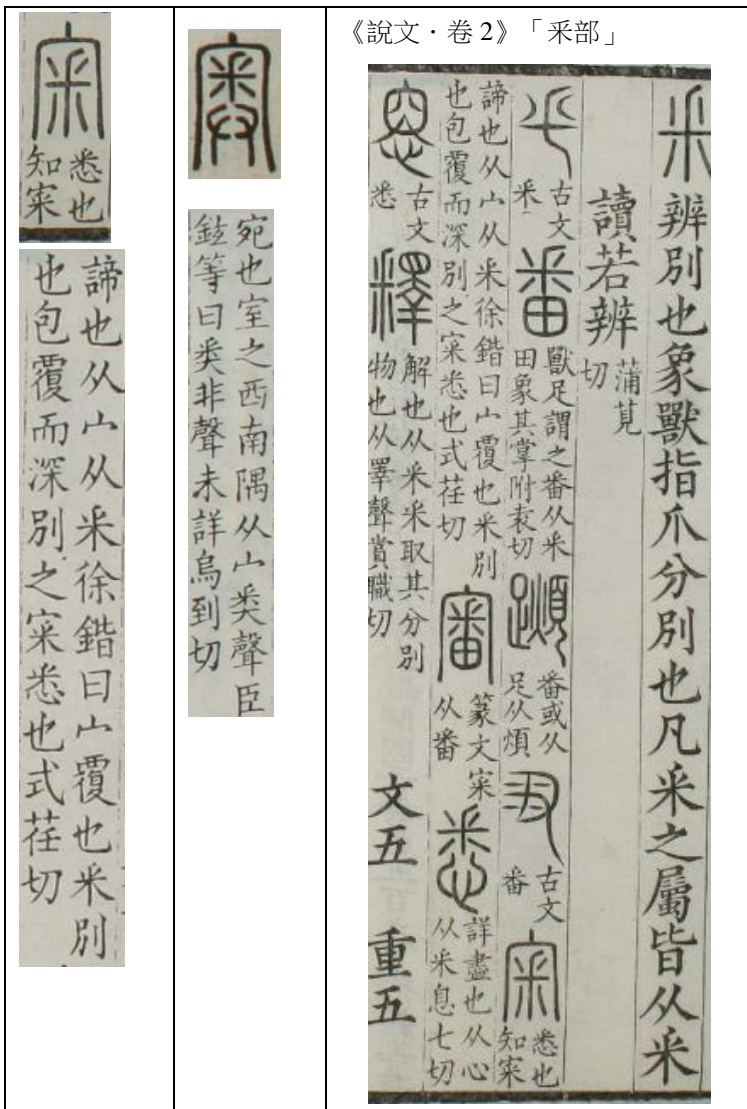 宷
悉也
知宷
諦也从宀从釆徐鍇曰宀覆也釆別
也包覆而深別之宷悉也式荏切
奧
宛也室之西南隅从宀𢍏聲臣
鉉等曰𢍏非聲未詳烏到切
《說文．卷2》「釆部」
釆辨別也象獸指爪分別也凡釆之屬皆从釆
讀若辨蒲莧切
古文釆番獸足謂之番从釆田象其掌附袁切䟴番或从足从煩古文番宷悉也知宷
諦也从宀从釆徐鍇曰宀覆也釆別也包覆而深別之宷悉也式荏切審篆文宷从番悉詳盡也从心从釆息七切
古文悉釋解也从釆釆取其分別物也从睪聲賞職切文五重五